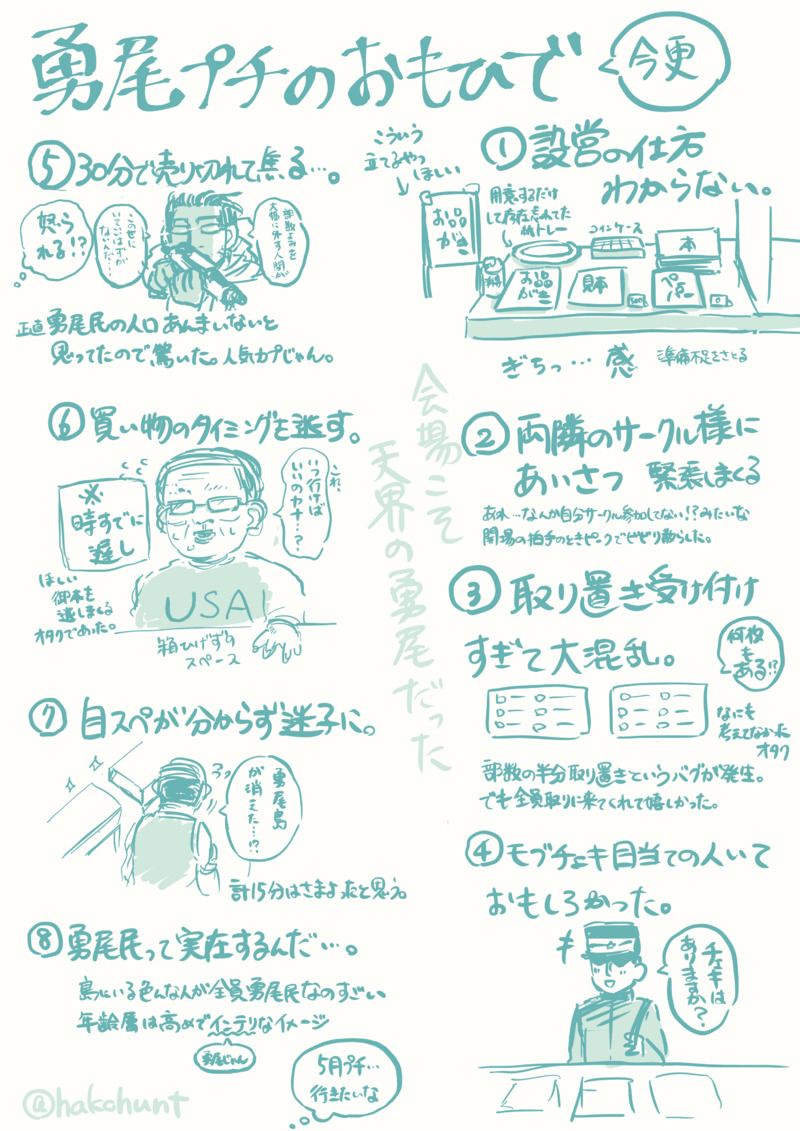 勇尾プチのおもひで
今更
①設営の仕方
わからない。
こういう
立てるやつ
ほしい
お品
がき
用意するだけ
して存在忘れてた
紙トレー
コインケース
本
お品
がき
見本
ペーパー
ぎちっ…感
準備不足をさとる
②両隣のサークル様に
あいさつ 緊張しまくる
あれ…なんか自分サークル参加してない!?みたいな
開場の拍手のときピークでビビり散らした。
③取り置き受け付け
すぎて大混乱。
何枚
も
ある!?
なにも
考えてなかった
オタク
部数の半分取り置きというバグが発生。
でも全員取りに来てくれて嬉しかった。
④モブチェキ目当ての人いて
おもしろかった。
チェキは
ありますか?
⑤30分で売り切れて焦る…。
部数よみを
大幅に外す人間が
この世に
いていいはずが
ないんだ…
怒ら
れる!?
正直 勇尾民の人口あんまいないと
思ってたので、驚いた。人気カプじゃん。
⑥買い物のタイミングを逃す。
これ、
いつ行けば
いいのカナ…?
※
時すでに
遅し
USA
ほしい
御本を
逃しまくる
オタクであった。
箱ひげずの
スペース
⑦自スペが分からず迷子に。
勇尾島
が消えた…!?
計15分はさまよったと思う。
⑧勇尾民って実在するんだ…。
島にいる色んな人が全員勇尾民なのすごい
年齢層は高めでインテリなイメージ
勇尾じゃん
5月プチ…
行きたいな
会場こそ
天界の勇尾だった
@hakohunt